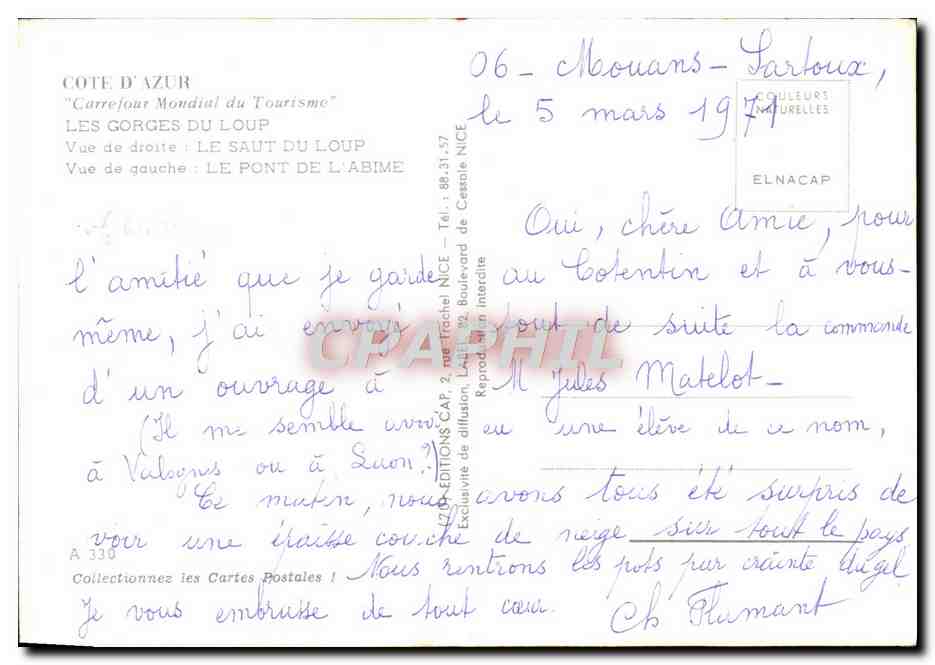 COTE D'AZUR
"Carrefour Mondial du Tourisme"
LES GORGES DU LOUP
Vue de droite : LE SAUT DU LOUP
Vue de gauche : LE PONT DE L'ABIME
06 - Mouans-Sartoux,
le 5 mars 1971
COULEURS
NATURELLES
ELNACAP
Oui, chère Amie, pour
l'amitié que je garde au Cotentin et à vous-
même, j'ai envoyé tout de suite la commande
d'un ouvrage à M Jules Matelot -
(Il me semble avoir eu une élève de ce nom,
à Valognes ou à ?)
Ce matin, nous avons tous été surpris de
voir une épaisse couche de neige sur tout le pays
Nous rentrons les pots par crainte du gel
Je vous embrasse de tout cœur. Ch Flamant
A 330
Collectionnez les Cartes Postales !
EDITIONS CAP, 2, rue Trachel NICE - Tél. : 88.31.57
Exclusivité de diffusion, LABEL 22, Boulevard de Cessole NICE
Reproduction interdite
CPAPHIL